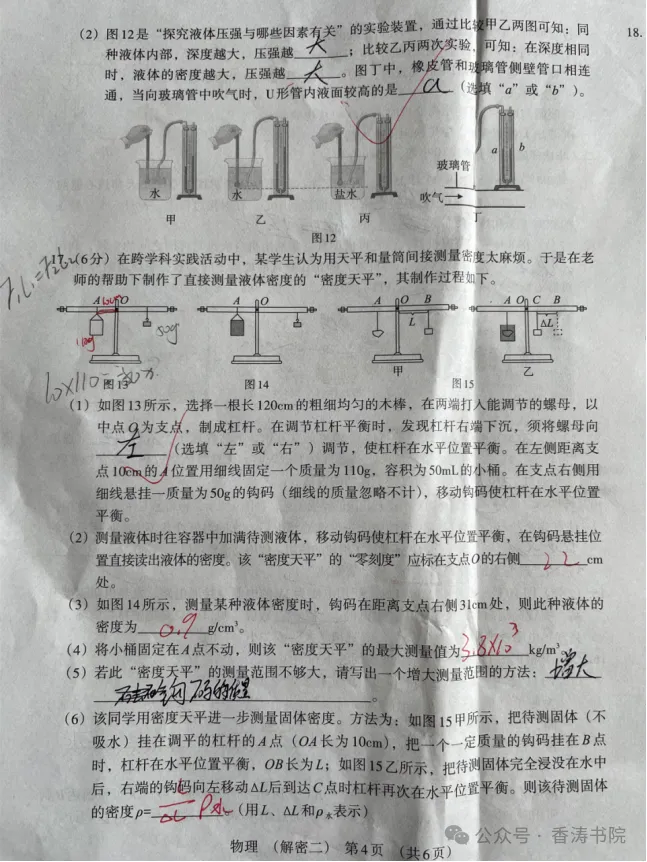 (2)图12是“探究液体压强与哪些因素有关”的实验装置,通过比较甲乙两图可知:同
18.
种液体内部,深度越大,压强越 大 ;比较乙丙两次实验,可知:在深度相同
时,液体的密度越大,压强越 大 。图丁中,橡皮管和玻璃管侧壁管口相连
通,当向玻璃管中吹气时,U形管内液面较高的是 a (选填“a”或“b”)。
a b
玻璃管
水 水 盐水 吹气
甲 乙 丙 丁
图12
F₁L₁=F₂L₂
(6分)在跨学科实践活动中,某学生认为用天平和量筒间接测量密度太麻烦。于是在老
师的帮助下制作了直接测量液体密度的“密度天平”,其制作过程如下。
A O A O A O B A O C B
L ΔL
110g 50g
甲 乙
图13 图14 图15
(1)如图13所示,选择一根长120cm的粗细均匀的木棒,在两端打入能调节的螺母,以
中点O为支点,制成杠杆。在调节杠杆平衡时,发现杠杆右端下沉,须将螺母向
左 (选填“左”或“右”)调节,使杠杆在水平位置平衡。在左侧距离支
点10cm的A位置用细线固定一个质量为110g,容积为50mL的小桶。在支点右侧用
细线悬挂一质量为50g的钩码(细线的质量忽略不计),移动钩码使杠杆在水平位置
平衡。
(2)测量液体时往容器中加满待测液体,移动钩码使杠杆在水平位置平衡,在钩码悬挂位
置直接读出液体的密度。该“密度天平”的“零刻度”应标在支点O的右侧 22 cm
处。
(3)如图14所示,测量某种液体密度时,钩码在距离支点右侧31cm处,则此种液体的
密度为 0.9 g/cm³。
(4)将小桶固定在A点不动,则该“密度天平”的最大测量值为 3.8×10³ kg/m³。
(5)若此“密度天平”的测量范围不够大,请写出一个增大测量范围的方法: 增大
钩码的质量 。
(6)该同学用密度天平进一步测量固体密度。方法为:如图15甲所示,把待测固体(不
吸水)挂在调平的杠杆的A点(OA长为10cm),把一个一定质量的钩码挂在B点
时,杠杆在水平位置平衡,OB长为L;如图15乙所示,把待测固体完全浸没在水中
后,右端的钩码向左移动ΔL后到达C点时杠杆再次在水平位置平衡。则该待测固体
的密度ρ= L/ΔL ρ水 (用L、ΔL和ρ水表示)
物理(解密二) 第4页 (共6页)
公众号·香涛书院